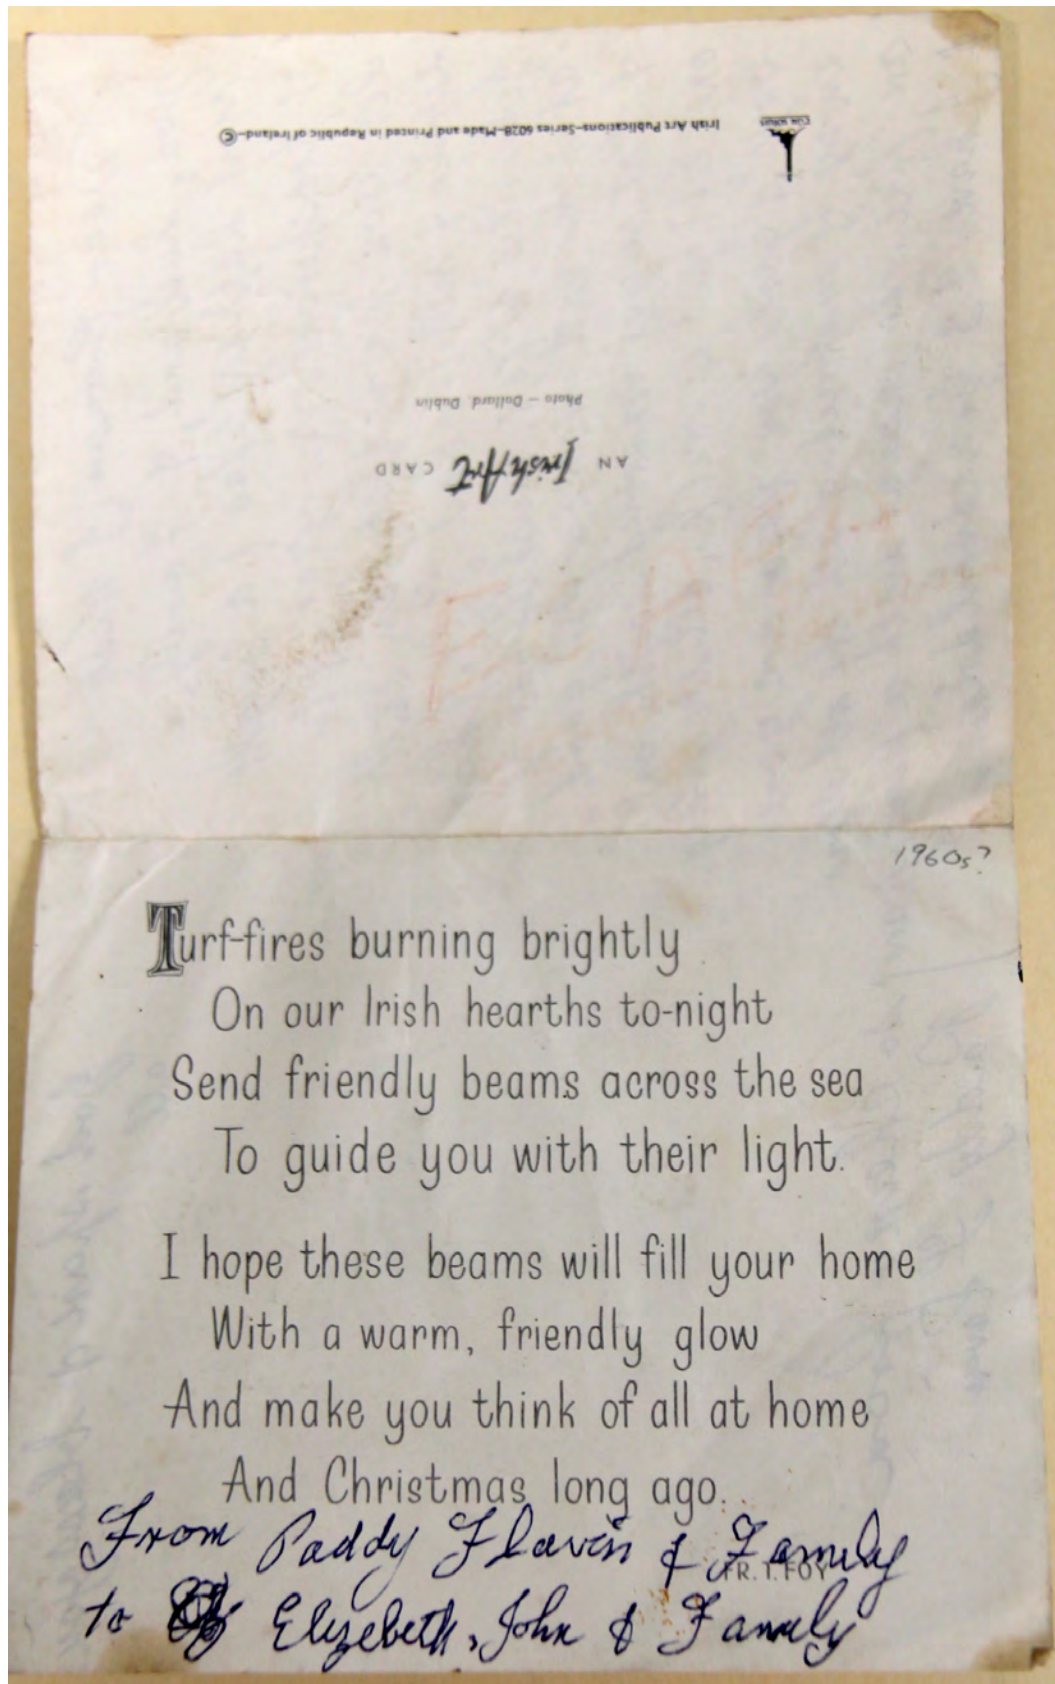 Irish Art Publications–Series 6028–Made and Printed in Republic of Ireland–©
Photo – Dollard, Dublin
AN Irish Art CARD
1960s?
Turf-fires burning brightly
On our Irish hearths to-night
Send friendly beams across the sea
To guide you with their light.
I hope these beams will fill your home
With a warm, friendly glow
And make you think of all at home
And Christmas long ago.
FR. T. FOY
From Paddy Flavin & Family
to Elizebeth, John & Family